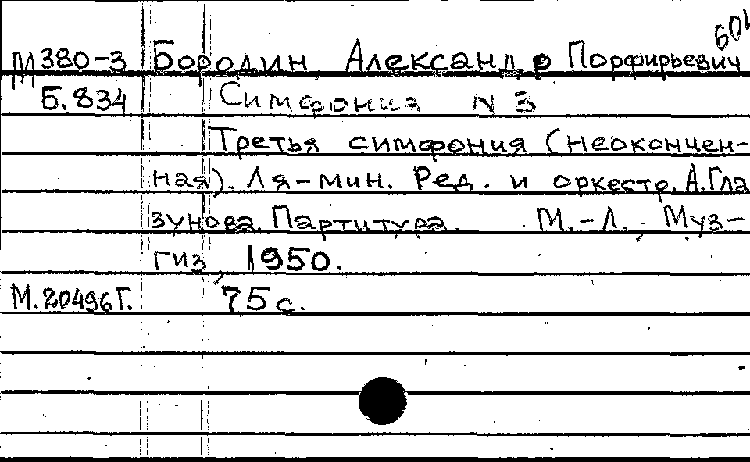 601
М380-3 Бородин, Александр Порфирьевич
Б.834 Симфония N 3
Третья симфония (неокончен-
ная). Ля-мин. Ред. и оркестр. А. Гла
зунова. Партитура. М.-Л., Муз-
гиз, 1950.
М.20496Г. 75 с.